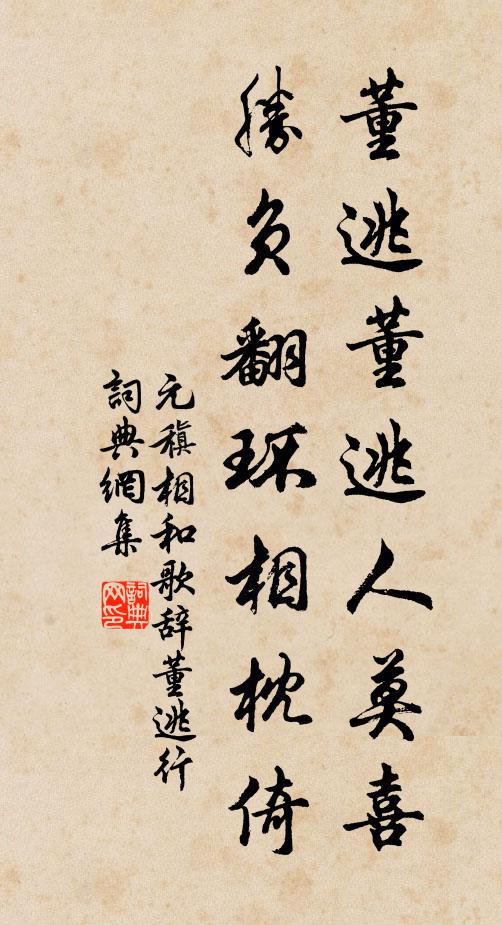 董逃董逃人莫喜
勝負翻环相枕倚
元稹相和歌辞董逃行
詞典網集
詞典网印